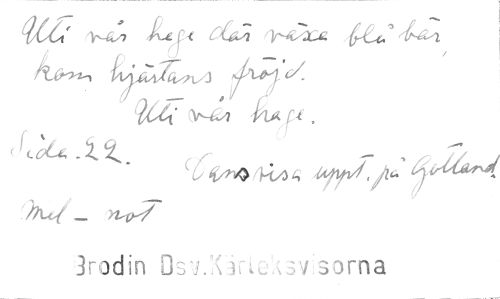 Uti vår hage där växa blå bär,
kom hjärtans fröjd.
Uti vår hage.
Sida. 22.
Dansvisa uppt. på Gotland.
Mel – not
Brodin Dsv. Kärleksvisorna